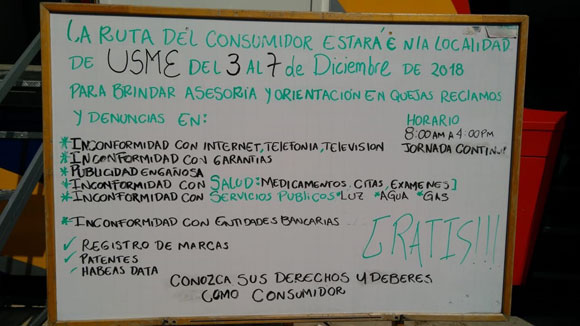 LA RUTA DEL CONSUMIDOR ESTARÁ EN LA LOCALIDAD
DE USME DEL 3 AL 7 de Diciembre DE 2018
PARA BRINDAR ASESORIA Y ORIENTACIÓN EN QUEJAS RECLAMOS
Y DENUNCIAS EN:
HORARIO
8:00 AM A 4:00 PM
JORNADA CONTINUA
*INCONFORMIDAD CON INTERNET, TELEFONIA, TELEVISION
*INCONFORMIDAD CON GARANTIAS
*PUBLICIDAD ENGAÑOSA
*INCONFORMIDAD CON SALUD: MEDICAMENTOS. CITAS, EXAMENES]
*INCONFORMIDAD CON SERVICIOS PUBLICOS *LUZ *AGUA *GAS
*INCONFORMIDAD CON ENTIDADES BANCARIAS...
✓ REGISTRO DE MARCAS
✓ PATENTES
✓ HABEAS DATA
GRATIS!!!
CONOZCA SUS DERECHOS Y DEBERES
COMO CONSUMIDOR